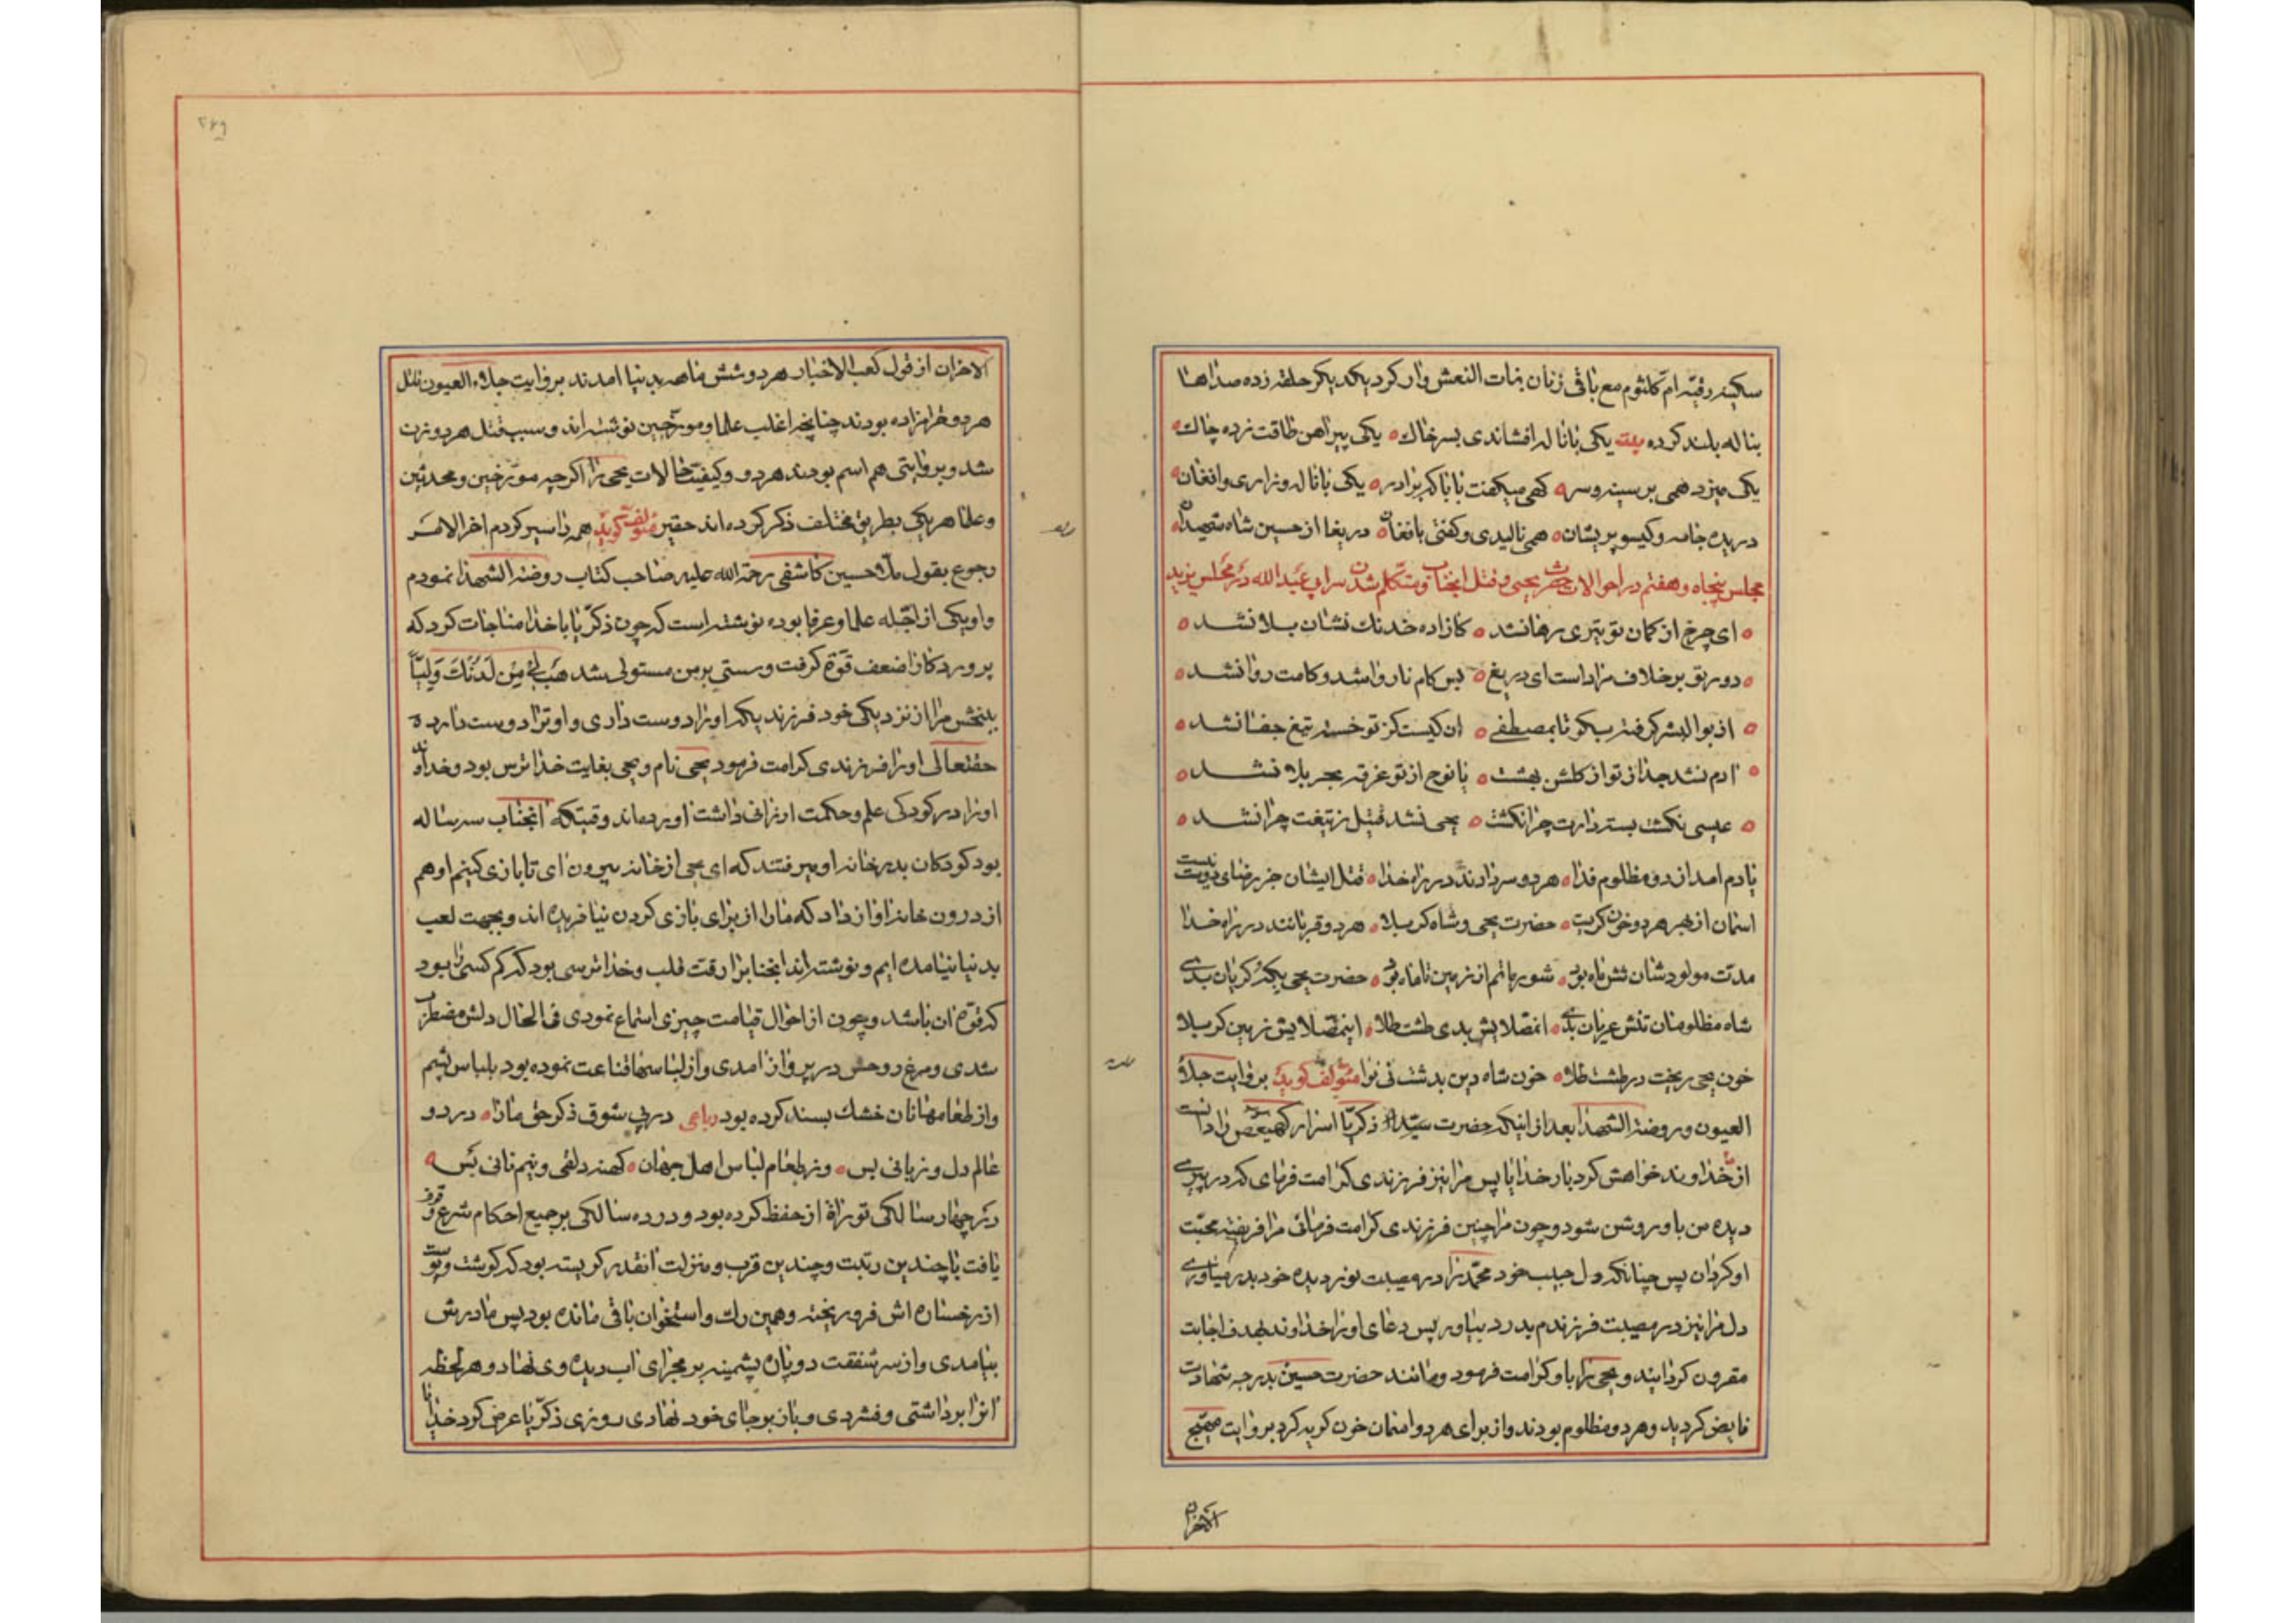 سکینه رقیه ام کلثوم مع باقی زنان بنات النعش وار کرد یکدیکر حلقه زده صداها
بناله بلند کرده بیت یکی با ناله افشاندی بسر خاک یکی پیراهن طاقت زده چاک
یکی میزد همی بر سینه و سر کهی میکفت بابا که برادر یکی با ناله و زاری و افغان
دریده جامه و کیسو پریشان همی نالیدی و کفتی بافغان دریغا از حسین شاه شهیدان
مجلس پنجاه و هفتم در احوالات حضرت یحیی و قتل انجناب و متکلم شدن سر ابی عبدالله در مجلس یزید
ای چرخ از کمان تو تیری رها نشد کازاده خدنک نشان بلا نشد
دور تو بر خلاف مراد است ای دریغ بس کام ناروا شد و کامت روا نشد
از بوالبشر کرفته سیکو تا بمصطفی ان کیست کز تو خسته تیغ جفا نشد
ادم نشد جدا از تو از کلشن بهشت یا نوح از تو غرقه بحر بلا نشد
عیسی نکشت بسته دارت چرا نکشت یحیی نشد قتیل ز تیغت چرا نشد
یادم امد از دو مظلوم فدا هر دو سر دادند در راه خدا قتل ایشان جز رضای دوست نیست
اسمان از بهر هر دو خون کریست حضرت یحیی و شاه کربلا هر دو قربانند در راه خدا
مدت مولودشان شش ماه بود شور ماتم از زمین تا ماه بود حضرت یحیی یکه کریان بدی
شاه مظلومان تنش عریان بدی انصلایش بدی طشت طلا اینمصلایش زمین کربلا
خون یحیی ریخت در طشت طلا خون شاه دین بدشت نینوا مؤلف کوید بروایت جلاء
العیون و روضة الشهدا بعد از اینکه حضرت ذکریا اسرار کهیعص را دانست
از خداوند خواهش کرد بار خدایا پس مرا نیز فرزندی کرامت فرمای که در پیری
دیده من باو روشن شود و چون مرا چنین فرزندی کرامت فرمائی مرا فریفته محبت
او کردان پس چنانکه دل حبیب خود محمد را در مصیبت نور دیده خود بدرد میاوری
دل مرا نیز در مصیبت فرزندم بدرد بیاور پس دعای او را خداوند بهدف اجابت
مقرون کردانید و یحیی را باو کرامت فرمود و مانند حضرت حسین بدرجه شهادت
فایض کردید و هر دو مظلوم بودند و از برای هر دو اسمان خون کریه کرد بروایت مهیج
الاحزان
الاحزان از قول کعب الاخبار هر دو شش ماهه بدنیا امدند بروایت جلاء العیون قاتل
هر دو حرامزاده بودند چنانچه اغلب علما و مورخین نوشته اند و سبب قتل هر دو زن
شد و بروایتی هم اسم بودند هر دو و کیفیت حالات یحیی را اکرچه مورخین و محدثین
و علما هر یکی بطریق مختلف ذکر کرده اند حقیر مؤلف کوید همه را سیر کردم اخر الامر
رجوع بقول ملا حسین کاشفی رحمة الله علیه صاحب کتاب روضة الشهدا نمودم
و او یکی از اجله علما و عرفا بوده نوشته است که چون ذکریا با خدا مناجات کرد که
پروردکارا ضعف قوة کرفت و سستی بر من مستولی شد هب لی من لدنک ولیا
ببخش مرا از نزدیکی خود فرزند یکه او را دوست داری و او ترا دوست دارد
حقتعالی او را فرزندی کرامت فرمود یحیی نام و یحیی بغایت خدا ترس بود و خداوند
او را در کودکی علم و حکمت ارزانی داشت اورده اند وقتیکه انجناب سه ساله
بود کودکان بدر خانه او میرفتند که ای یحیی از خانه بیرون ای تا بازی کنیم او هم
از درون خانه اواز داد که ما را از برای بازی کردن نیافریده اند و بجهت لعب
بدنیا نیامده ایم و نوشته اند انجناب را رقت قلب و خدا ترسی بود که کم کسی را بود
که قوة ان باشد و چون از احوال قیامت چیزی استماع نمودی فی الحال دلش مضطرب
شدی و مرغ روحش در پرواز امدی و از لباسها قناعت نموده بود بلباس پشم
و از طعامها نان خشک بسند کرده بود رباعی در پی شوق ذکر حق ما را در دو
عالم دل و زبانی بس وز طعام لباس اهل جهان کهنه دلقی و نیم نانی بس
در چهار سالکی توراة از حفظ کرده بود و در ده سالکی بر جمیع احکام شرع وقوف
یافت با چندین رتبت و چندین قرب و منزلت انقدر کریسته بود که کوشت و پوست
از رخساره اش فرو ریخته و همین رک و استخوان باقی مانده بود پس مادرش
بیامدی و از سر شفقت دو پاره پشمینه بر مجرای اب دیده وی نهاد و هر لحظه
انرا برداشتی و فشردی و باز بر جای خود نهادی روزی ذکریا عرض کرد خدایا